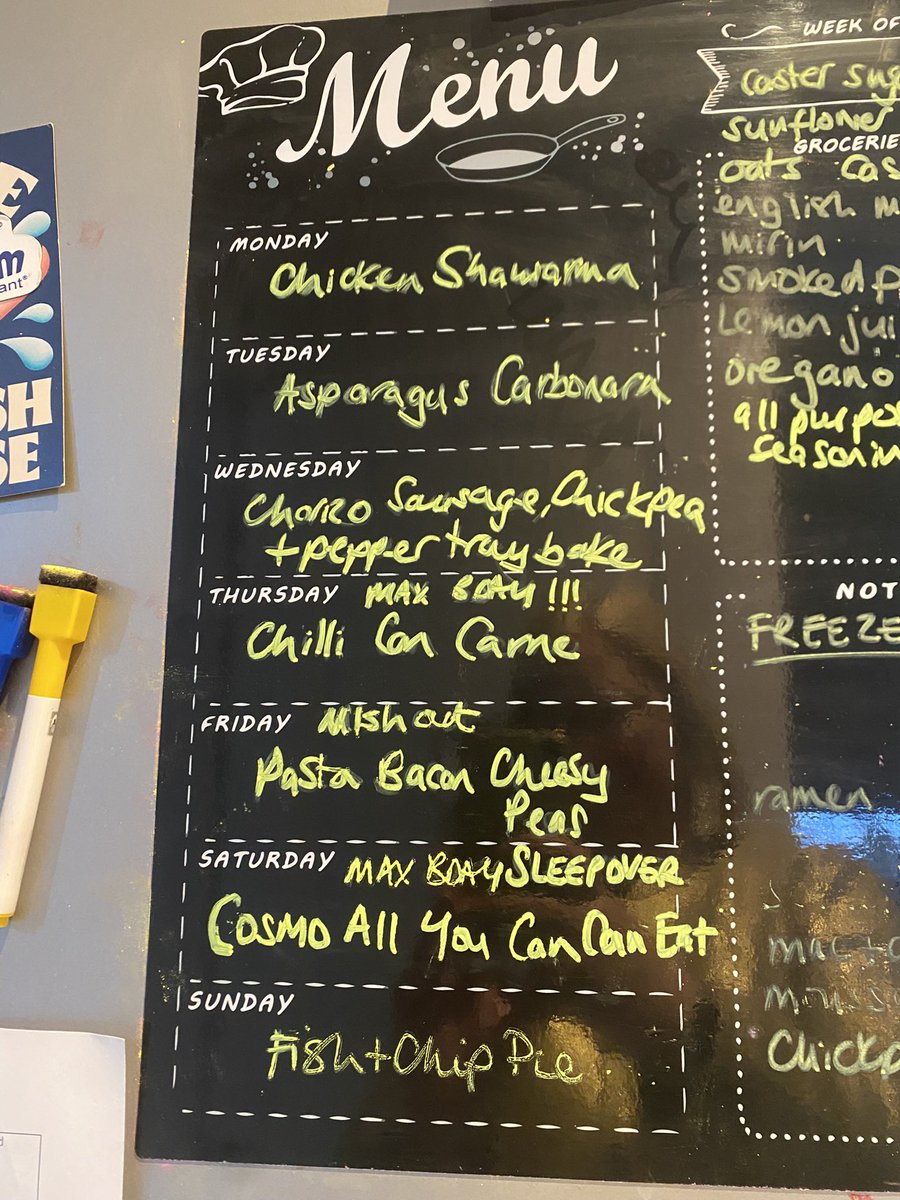 Menu
MONDAY
Chicken Shawarma
TUESDAY
Asparagus Carbonara
WEDNESDAY
Chorizo Sausage, Chickpea
+ pepper tray bake
THURSDAY MAX BDAY!!!
Chilli Con Carne
FRIDAY Mish out
Pasta Bacon Cheesy
Peas
SATURDAY MAX BDAY SLEEPOVER
Cosmo All You Can Can Eat
SUNDAY
Fish + Chip Pie
WEEK OF
caster
sunflower
GROCERIE
oats
english
mirin
smoked
Lemon jui
oregano
all purpo
seasonin
NOT
FREEZE
ramen
mac +
Chickp
E
m
ant®
SH
SE